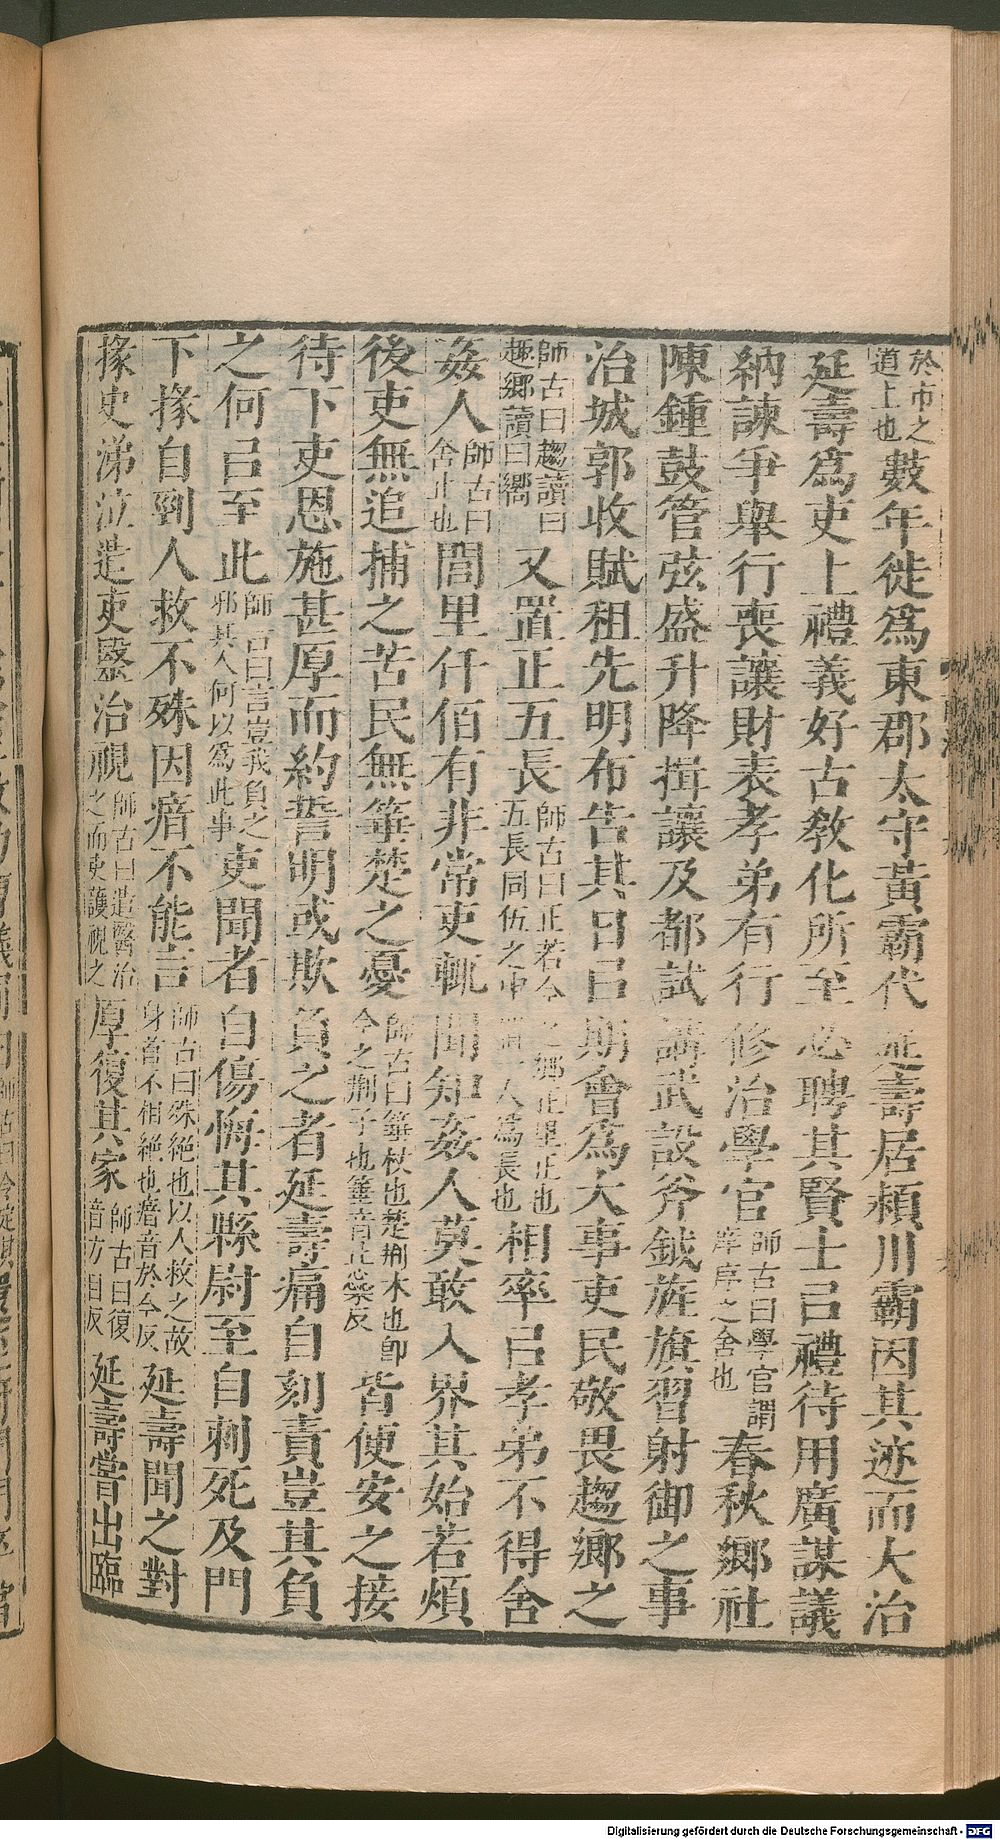 於市之道上也數年徙爲東郡太守黃霸代延壽居潁川霸因其迹而大治
延壽爲吏上禮義好古敎化所至必聘其賢士㠯禮待用廣謀議
納諫爭舉行喪讓財表孝弟有行修治學官師古曰學官謂庠序之舍也春秋鄉社
陳鍾鼓管弦盛升降揖讓及都試講武設斧鉞旌旗習射御之事
治城郭收賦租先明布告其日㠯期會爲大事吏民敬畏趨鄉之
師古曰趨讀曰趣鄉讀曰嚮又置正五長師古曰正若今之鄉正里正也五長同伍之中置一人爲長也相率㠯孝弟不得舍
姦人師古曰舍止也閭里仟佰有非常吏輒聞知姦人莫敢入界其始若煩
後吏無追捕之苦民無箠楚之憂師古曰箠杖也楚荆木也卽今之荆子也箠音止橤反皆便安之接
待下吏恩施甚厚而約誓明或欺負之者延壽痛自刻責豈其負
之何㠯至此師古曰言豈我負之邪其人何以爲此事吏聞者自傷悔其縣尉至自刺死及門
下掾自剄人救不殊因瘖不能言師古曰殊絕也以人救之故身首不相絕也瘖音於今反延壽聞之對
掾史涕泣遣吏醫治視師古曰遣醫治之而吏護視之厚復其家師古曰復音方目反延壽嘗出臨
Digitalisierung gefördert durch die Deutsche Forschungsgemeinschaft - DFG